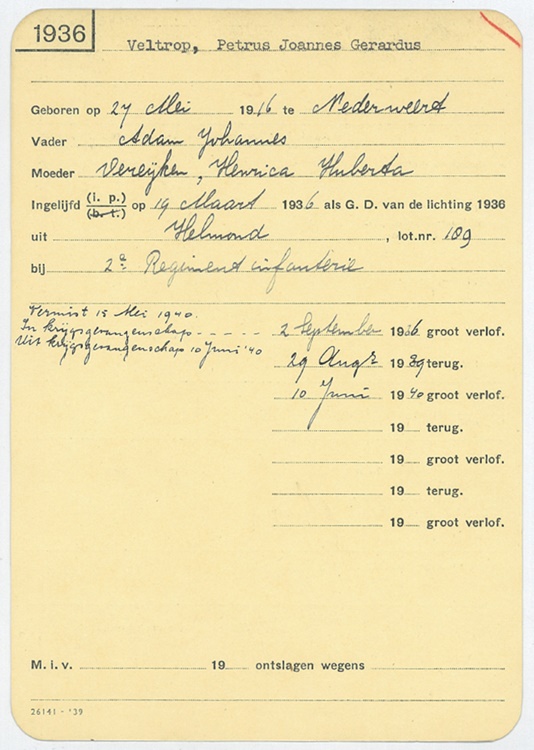 1936
Veltrop, Petrus Joannes Gerardus
Geboren op 27 Mei 1916 te Nederweert
Vader Adam Johannes
Moeder Vereijken, Henrica Huberta
Ingelijfd (i. p.) (b. t.) op 19 Maart 1936 als G. D. van de lichting 1936
uit Helmond, lot.nr. 109
bij 2e Regiment infanterie
Vermist 15 Mei 1940.
In krijgsgevangenschap - - - - -
Uit krijgsgevangenschap 10 Juni '40
2 September 1936 groot verlof.
29 Augs 1939 terug.
10 Juni 1940 groot verlof.
19 terug.
19 groot verlof.
19 terug.
19 groot verlof.
M. i. v. 19 ontslagen wegens
26141 - '39